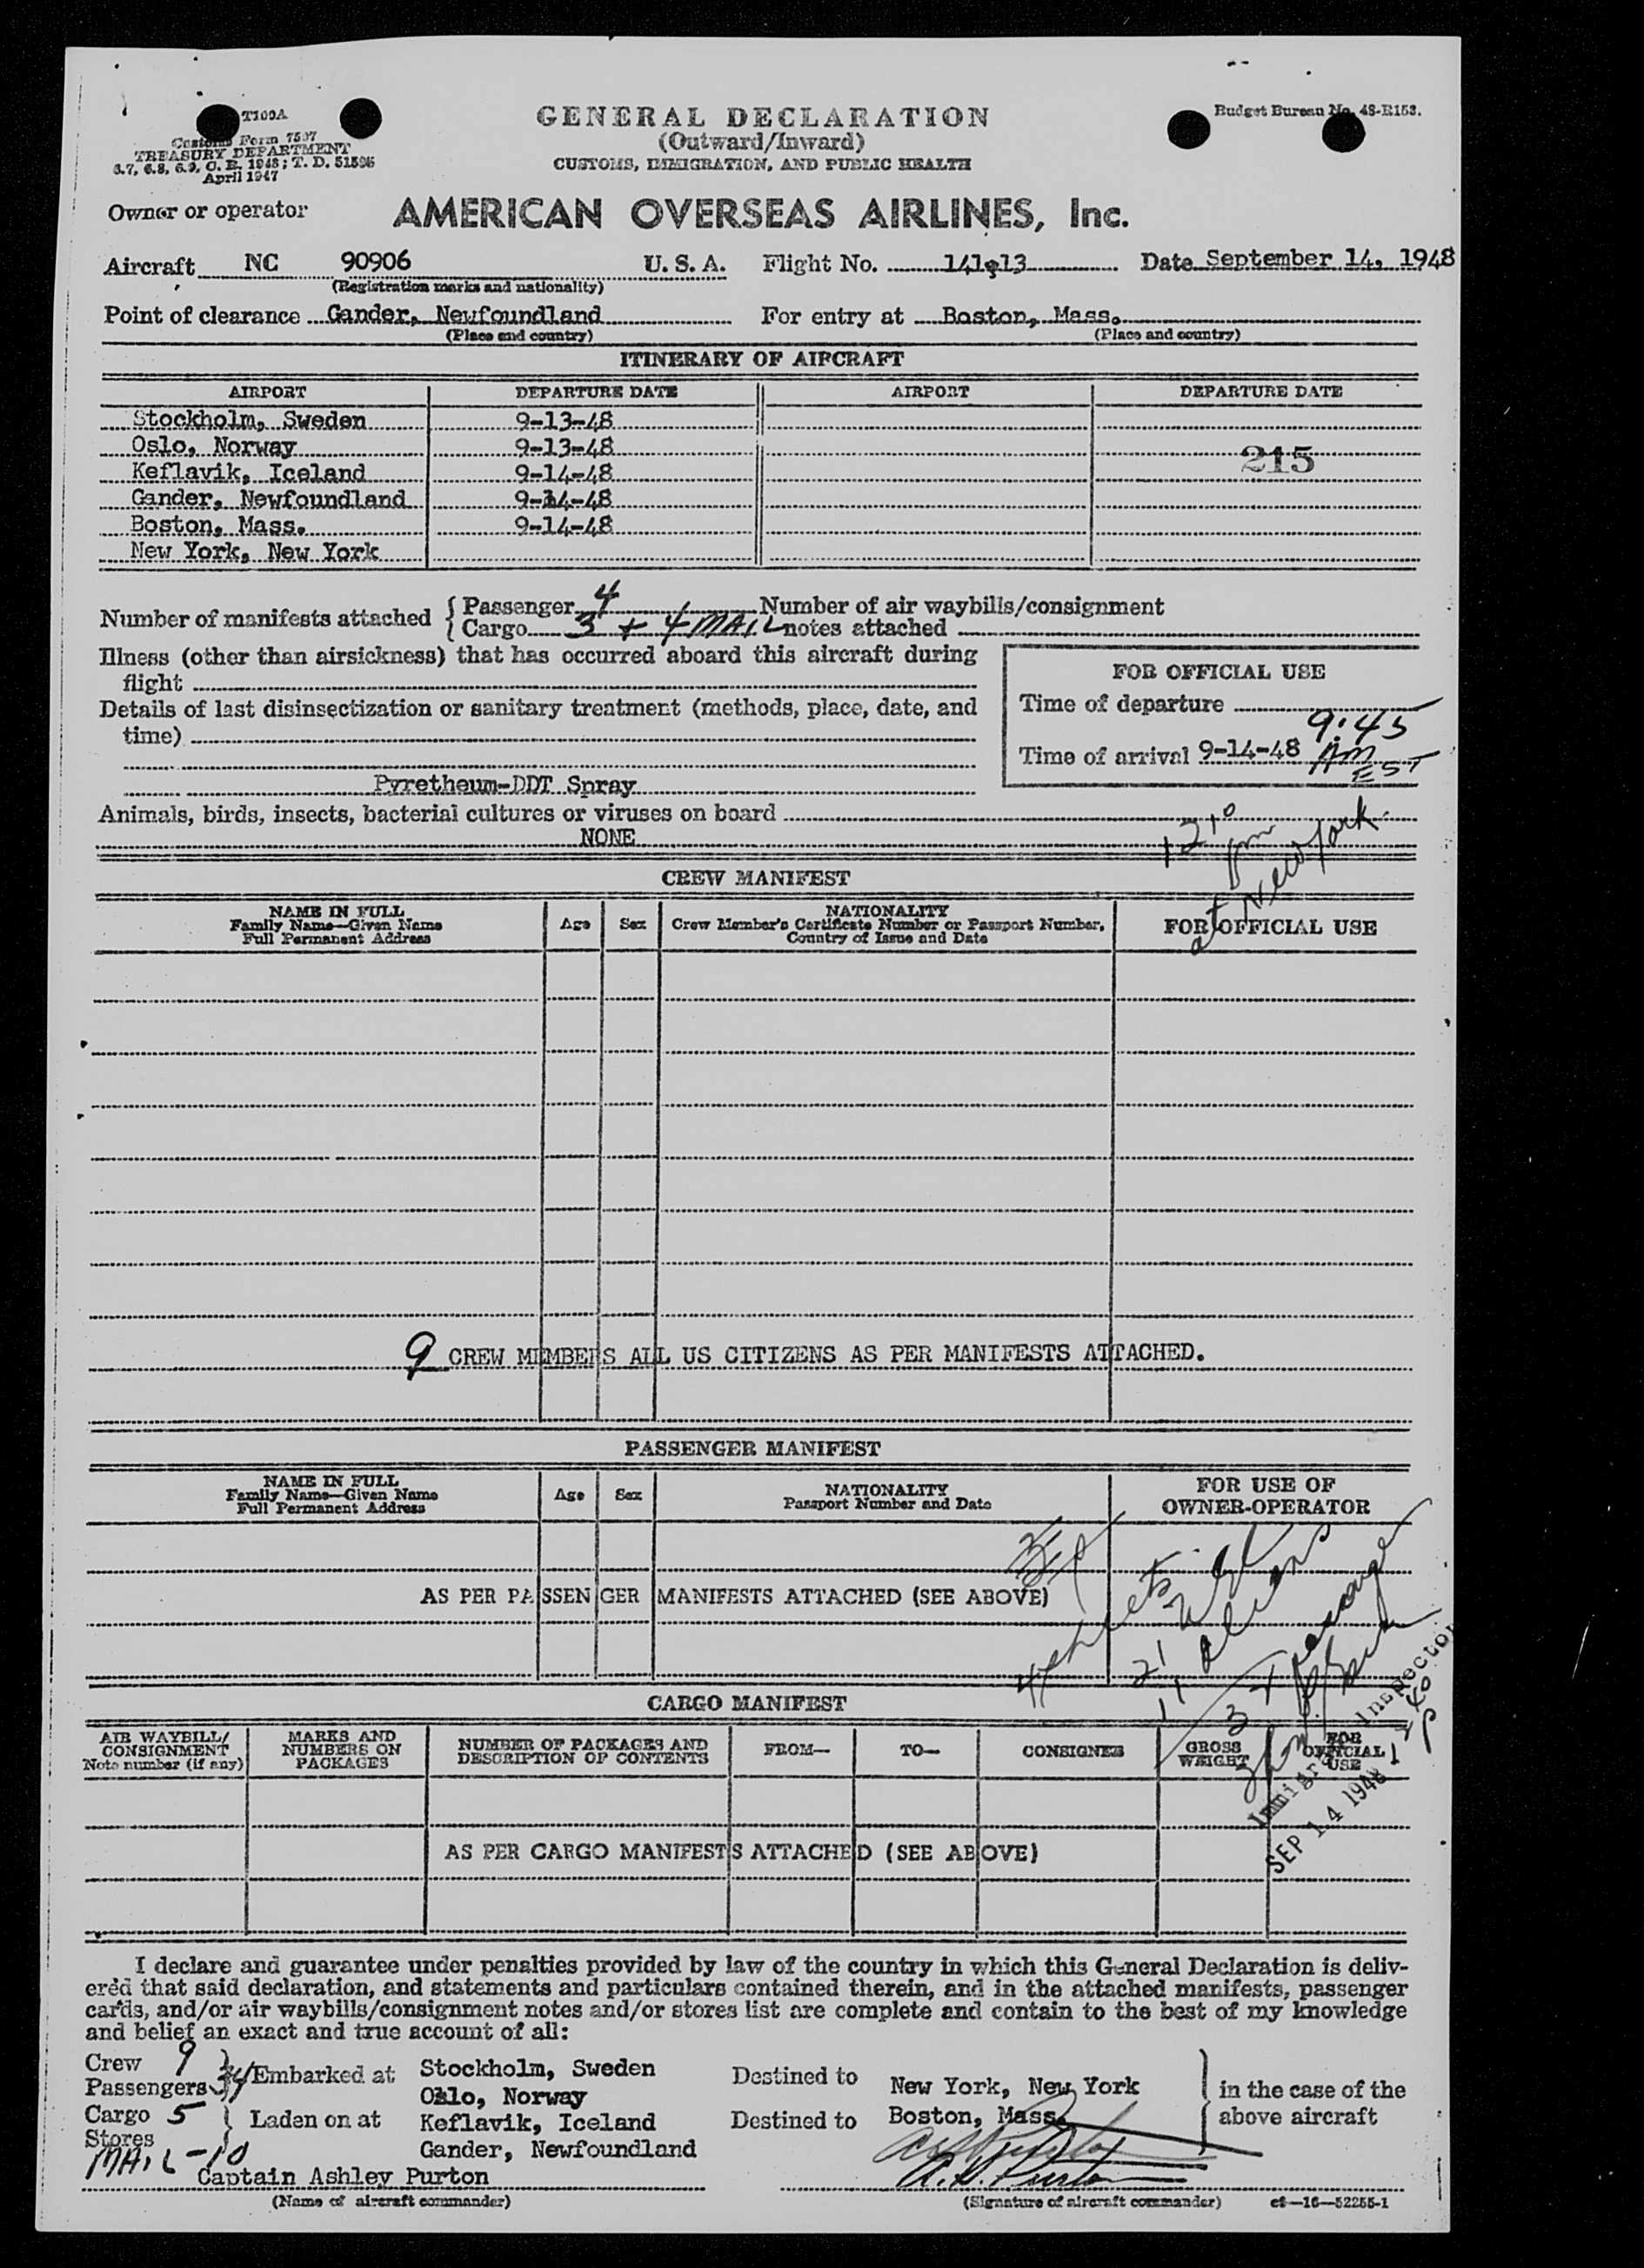 T100A
Customs Form 7507
TREASURY DEPARTMENT
6.7, 6.8, 6.9, C. R. 1943; T. D. 51596
April 1947
GENERAL DECLARATION
(Outward/Inward)
CUSTOMS, IMMIGRATION, AND PUBLIC HEALTH
Budget Bureau No. 48-R153.
Owner or operator AMERICAN OVERSEAS AIRLINES, Inc.
Aircraft NC 90906 U. S. A. Flight No. 141913 Date September 14, 1948
(Registration marks and nationality)
Point of clearance Gander, Newfoundland For entry at Boston, Mass.
(Place and country) (Place and country)
ITINERARY OF AIRCRAFT
AIRPORT DEPARTURE DATE AIRPORT DEPARTURE DATE
Stockholm, Sweden 9-13-48
Oslo, Norway 9-13-48
215
Keflavik, Iceland 9-14-48
Gander, Newfoundland 9-14-48
Boston, Mass. 9-14-48
New York, New York
Number of manifests attached { Passenger 4 Number of air waybills/consignment
Cargo 3 + 4 MAIL notes attached
Illness (other than airsickness) that has occurred aboard this aircraft during
flight
Details of last disinsectization or sanitary treatment (methods, place, date, and
time)
Pyretheum-DDT Spray
FOR OFFICIAL USE
Time of departure
Time of arrival 9-14-48 9:45 AM EST
Animals, birds, insects, bacterial cultures or viruses on board
NONE
at New York
CREW MANIFEST
NAME IN FULL
Family Name—Given Name
Full Permanent Address
Age Sex
NATIONALITY
Crew Member's Certificate Number or Passport Number,
Country of Issue and Date
FOR OFFICIAL USE
9 CREW MEMBERS ALL US CITIZENS AS PER MANIFESTS ATTACHED.
PASSENGER MANIFEST
NAME IN FULL
Family Name—Given Name
Full Permanent Address
Age Sex
NATIONALITY
Passport Number and Date
FOR USE OF
OWNER-OPERATOR
AS PER PASSENGER MANIFESTS ATTACHED (SEE ABOVE)
4 sheets
21
11 aliens
Immigrant Inspector
SEP 14 1948
CARGO MANIFEST
AIR WAYBILL/
CONSIGNMENT
Note number (if any)
MARKS AND
NUMBERS ON
PACKAGES
NUMBER OF PACKAGES AND
DESCRIPTION OF CONTENTS
FROM— TO— CONSIGNEE
GROSS
WEIGHT
FOR
OFFICIAL
USE
AS PER CARGO MANIFESTS ATTACHED (SEE ABOVE)
I declare and guarantee under penalties provided by law of the country in which this General Declaration is deliv-
ered that said declaration, and statements and particulars contained therein, and in the attached manifests, passenger
cards, and/or air waybills/consignment notes and/or stores list are complete and contain to the best of my knowledge
and belief an exact and true account of all:
Crew 9
Passengers 34 } Embarked at
Cargo 5
Stores } Laden on at
MAIL-10
Stockholm, Sweden
Oslo, Norway
Keflavik, Iceland
Gander, Newfoundland
Destined to New York, New York
Destined to Boston, Mass.
in the case of the
above aircraft
Captain Ashley Purton
A. S. Purton
(Name of aircraft commander) (Signature of aircraft commander) c6—16—52255-1